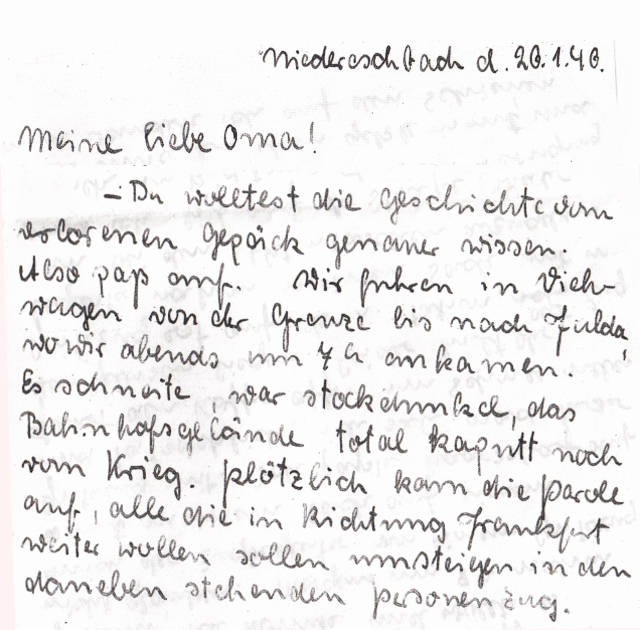 Niedereschbach d. 26.1.46.
Meine liebe Oma!
– Du wolltest die Geschichte vom
verlorenen Gepäck genauer wissen.
Also paß auf. Wir fuhren in Vieh-
wagen von der Grenze bis nach Fulda,
wo wir abends um 7 h ankamen.
Es schneite, war stockdunkel, das
Bahnhofsgelände total kaputt noch
vom Krieg. Plötzlich kam die Parole
auf, alle die in Richtung Frankfurt
weiter wollen sollen umsteigen in den
daneben stehenden Personenzug.